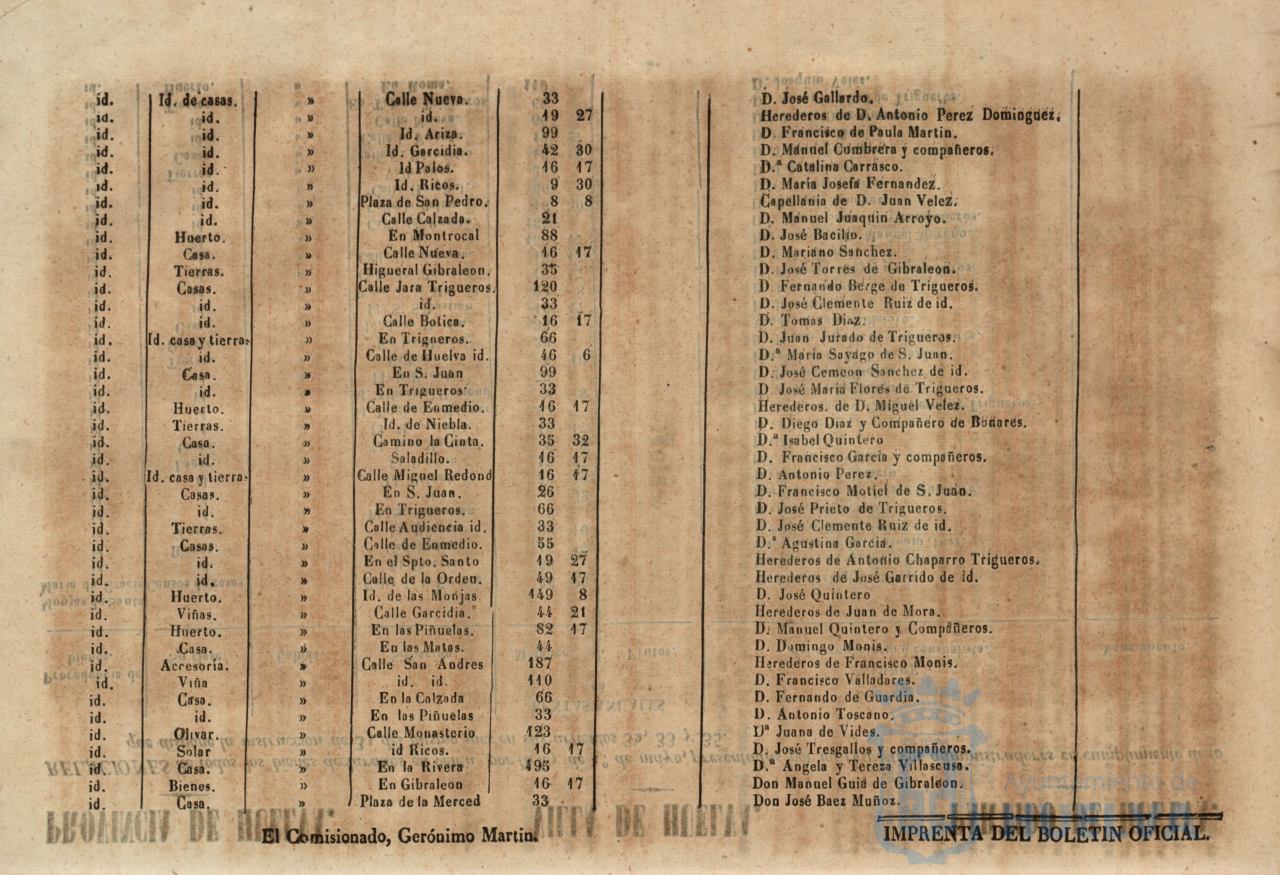 id. Id. de casas. » Calle Nueva. 33 D. José Gallardo.
id. id. » id. 19 27 Herederos de D. Antonio Perez Dominguez.
id. id. » Id. Ariza. 99 D. Francisco de Paula Martin.
id. id. » Id. Garcidia. 42 30 D. Manuel Cumbrera y compañeros.
id. id. » Id Palos. 16 17 D.ª Catalina Carrasco.
id. id. » Id. Ricos. 9 30 D. María Josefa Fernandez.
id. id. » Plaza de San Pedro. 8 8 Capellania de D. Juan Velez.
id. id. » Calle Calzada. 21 D. Manuel Joaquin Arroyo.
id. Huerto. » En Montrocal 88 D. José Bacilio.
id. Casa. » Calle Nueva. 16 17 D. Mariano Sanchez.
id. Tierras. » Higueral Gibraleon. 35 D. José Torres de Gibraleon.
id. Casas. » Calle Jara Trigueros. 120 D Fernando Berge de Trigueros.
id. id. » id. 33 D. José Clemente Ruiz de id.
id. id. » Calle Botica. 16 17 D. Tomas Diaz.
id. Id. casa y tierra. » En Trigneros. 66 D. Juan Jurado de Trigueros.
id. id. » Calle de Huelva id. 46 6 D.ª María Sayago de S. Juan.
id. Casa. » En S. Juan 99 D. José Cemeon Sanchez de id.
id. id. » En Trigueros 33 D. José María Flores de Trigueros.
id. Huerto. » Calle de Enmedio. 16 17 Herederos. de D. Miguel Velez.
id. Tierras. » Id. de Niebla. 33 D. Diego Diaz y Compañero de Bonares.
id. Casa. » Camino la Cinta. 35 32 D.ª Isabel Quintero
id. id. » Saladillo. 16 17 D. Francisco García y compañeros.
id. Id. casa y tierra. » Calle Miguel Redond 16 17 D. Antonio Perez.
id. Casas. » En S. Juan. 26 D. Francisco Motiel de S. Juan.
id. id. » En Trigueros. 66 D. José Prieto de Trigueros.
id. Tierras. » Calle Audiencia id. 33 D. José Clemente Ruiz de id.
id. Casas. » Calle de Enmedio. 55 D.ª Agustina García.
id. id. » En el Spto. Santo 19 27 Herederos de Antonio Chaparro Trigueros.
id. id. » Calle de la Orden. 49 17 Herederos de José Garrido de id.
id. Huerto. » Id. de las Monjas 149 8 D. José Quintero
id. Viñas. » Calle Garcidia. 44 21 Herederos de Juan de Mora.
id. Huerto. » En las Piñuelas. 82 17 D. Manuel Quintero y Compañeros.
id. Casa. » En las Matas. 44 D. Domingo Monis.
id. Accesoria. » Calle San Andres 187 Herederos de Francisco Monis.
id. Viña » id. id. 110 D. Francisco Valladares.
id. Casa. » En la Calzada 66 D. Fernando de Guardia.
id. id. » En las Piñuelas 33 D. Antonio Toscano.
id. Olivar. » Calle Monasterio 123 Dª Juana de Vides.
id. Solar » id Ricos. 16 17 D. José Tresgallos y compañeros.
id. Casa. » En la Rivera 495 D.ª Angela y Tereza Villascusa.
id. Bienes. » En Gibraleon 16 17 Don Manuel Guia de Gibraleon.
id. Casa. » Plaza de la Merced 33 Don José Baez Muñoz.
El Comisionado, Gerónimo Martin.
IMPRENTA DEL BOLETIN OFICIAL.
Ayuntamiento de